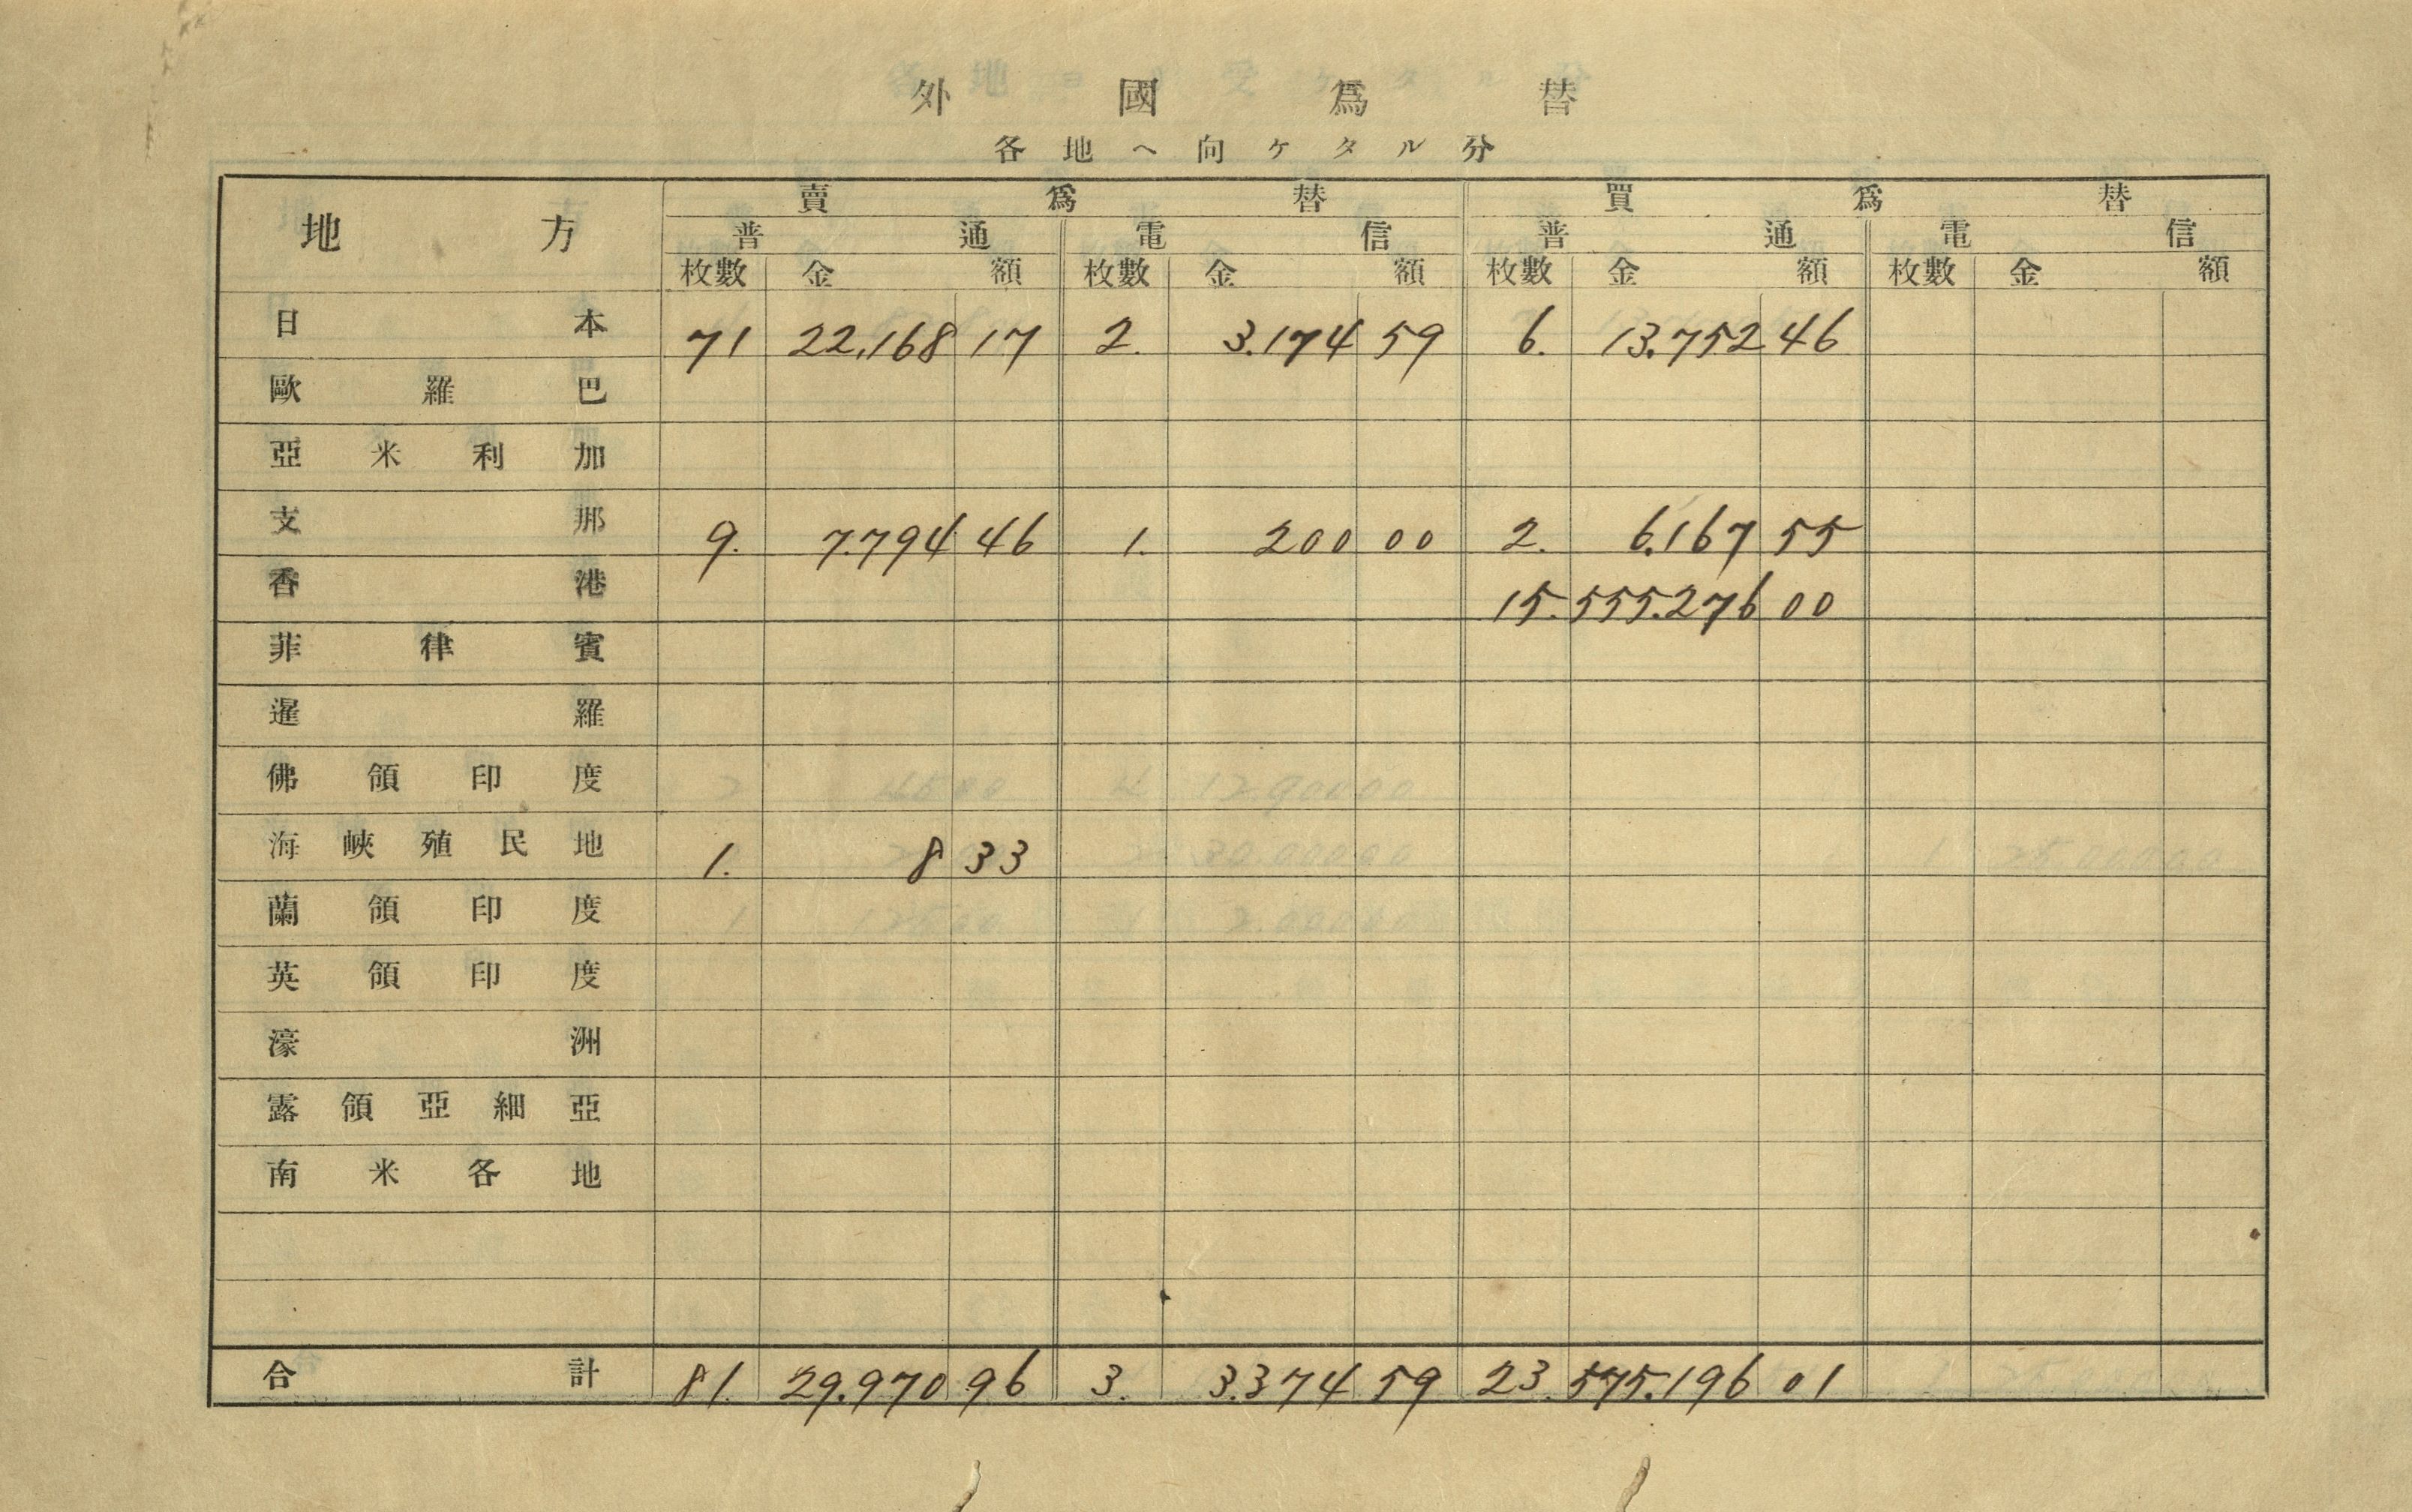 外國爲替
各地ヘ向ケタル分
地方 賣爲替 買爲替
普通 電信 普通 電信
枚數 金額 枚數 金額 枚數 金額 枚數 金額
日本 71 22,168 17 2. 3.174 59 6. 13.752 46
歐羅巴
亞米利加
支那 9. 7.794 46 1. 200 00 2. 6.167 55
香港 15. 555.276 00
菲律賓
暹羅
佛領印度
海峽殖民地 1. 8 33
蘭領印度
英領印度
濠洲
露領亞細亞
南米各地
合計 81. 29.970 96 3. 3.374 59 23. 575.196 01